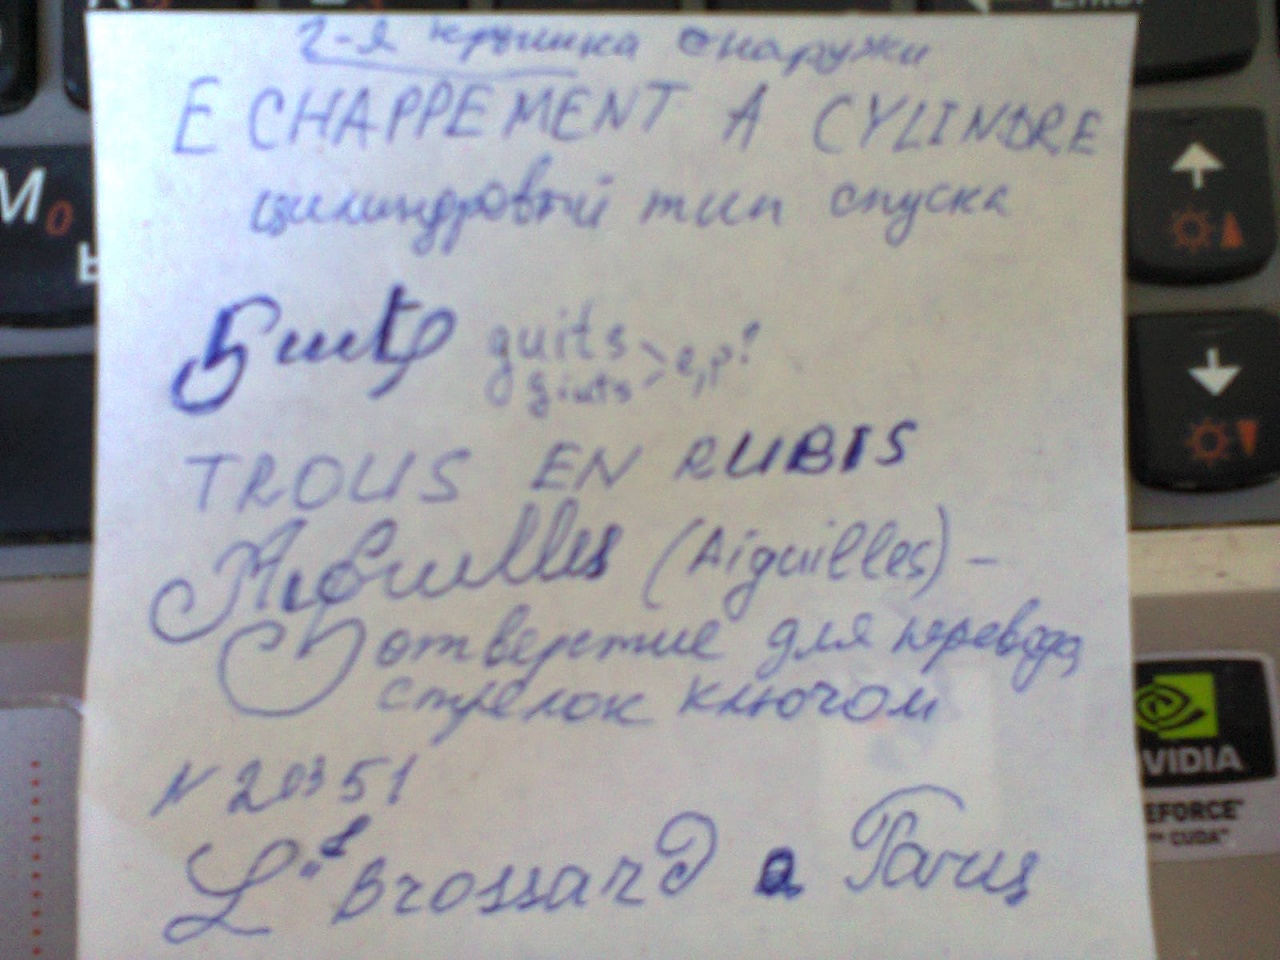 2-я крышка снаружи
ECHAPPEMENT A CYLINDRE
цилиндровый тип спуска
guits
giuts > e,p!
TROUS EN RUBIS
Aiguilles (Aiguilles) –
отверстие для перевода
стрелок ключом
N 20351
L. Brossard a Paris
Enter
M
0
Ь
NVIDIA
GEFORCE
CUDA